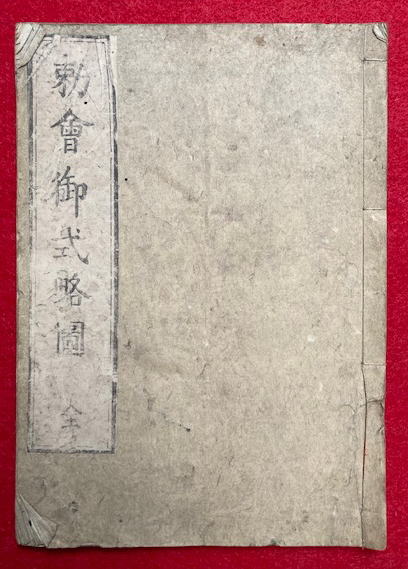 勅會御式略圖 全